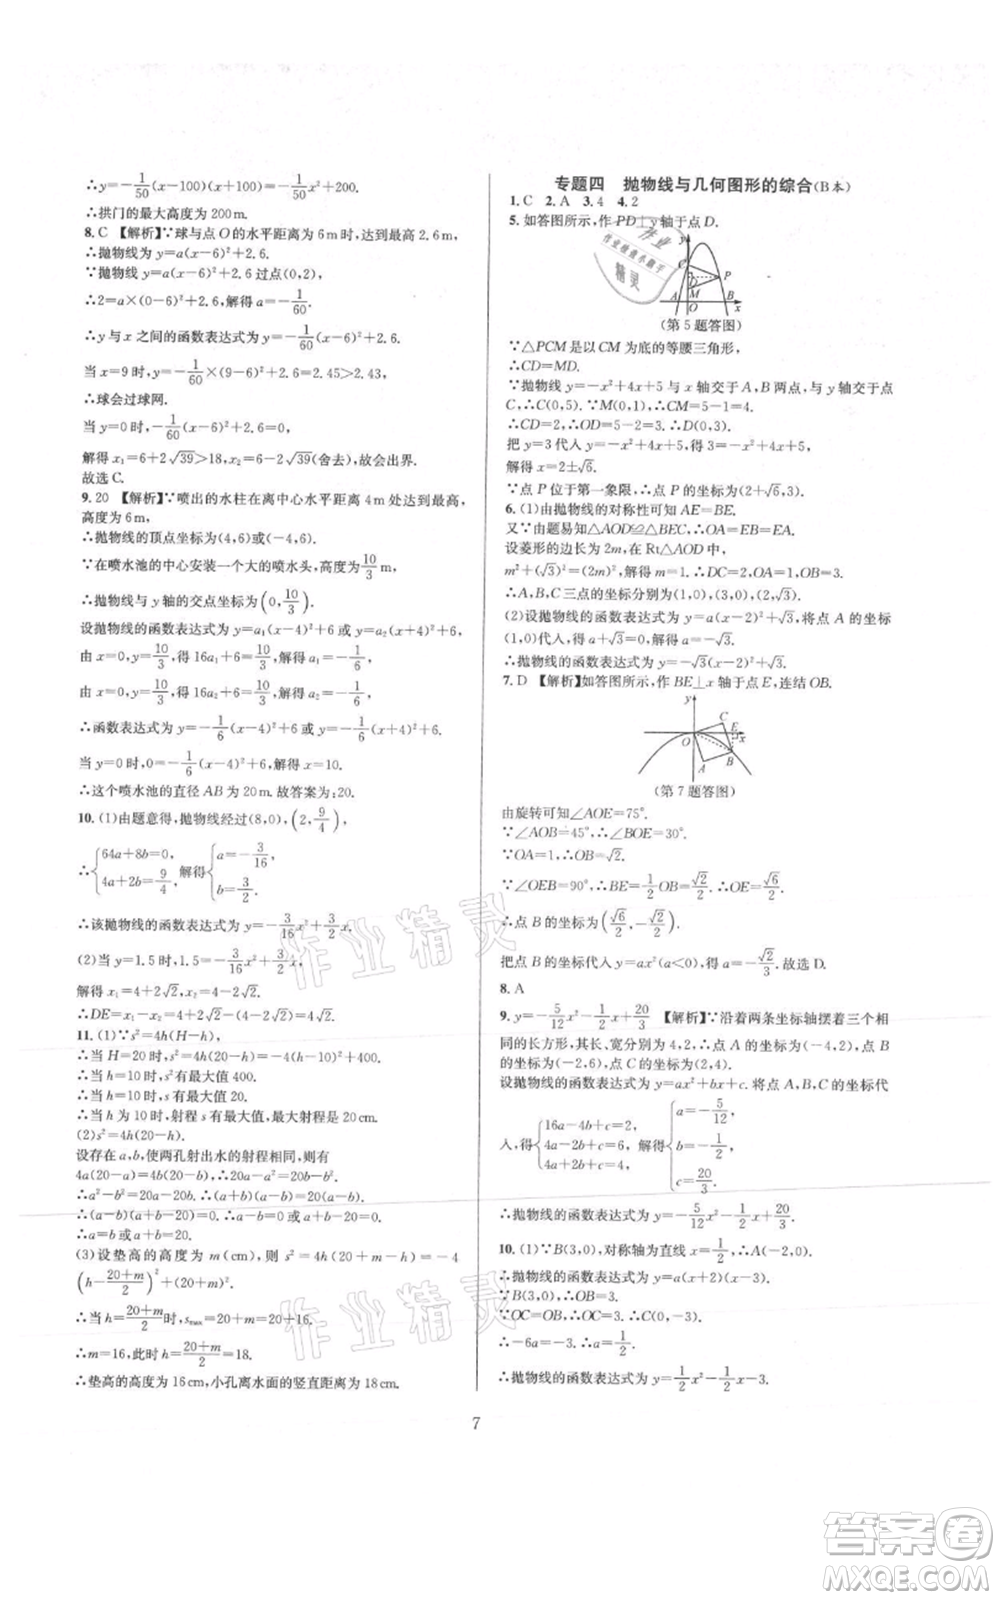 ∴y=-1/50(x-100)(x+100)=-1/50x²+200.
∴拱门的最大高度为200m.
8. C 【解析】∵球与点O的水平距离为6m时,达到最高2.6m,
∴抛物线为y=a(x-6)²+2.6.
∵抛物线y=a(x-6)²+2.6过点(0,2),
∴2=a×(0-6)²+2.6,解得a=-1/60.
∴y与x之间的函数表达式为y=-1/60(x-6)²+2.6.
当x=9时,y=-1/60×(9-6)²+2.6=2.45>2.43,
∴球会过球网.
当y=0时,-1/60(x-6)²+2.6=0,
解得x₁=6+2√39>18,x₂=6-2√39(舍去),故会出界.
故选C.
9. 20 【解析】∵喷出的水柱在离中心水平距离4m处达到最高,
高度为6m,
∴抛物线的顶点坐标为(4,6)或(-4,6).
∵在喷水池的中心安装一个大的喷水头,高度为10/3m,
∴抛物线与y轴的交点坐标为(0,10/3).
设抛物线的函数表达式为y=a₁(x-4)²+6或y=a₂(x+4)²+6,
由x=0,y=10/3,得16a₁+6=10/3,解得a₁=-1/6.
由x=0,y=10/3,得16a₂+6=10/3,解得a₂=-1/6.
∴函数表达式为y=-1/6(x-4)²+6或y=-1/6(x+4)²+6.
当y=0时,0=-1/6(x-4)²+6,解得x=10.
∴这个喷水池的直径AB为20m.故答案为:20.
10. (1)由题意得,抛物线经过(8,0),(2,9/4),
∴{64a+8b=0, 4a+2b=9/4, 解得{a=-3/16, b=3/2.
∴该抛物线的函数表达式为y=-3/16x²+3/2x.
(2)当y=1.5时,1.5=-3/16x²+3/2x,
解得x₁=4+2√2,x₂=4-2√2.
∴DE=x₁-x₂=4+2√2-(4-2√2)=4√2(m).
11. (1)∵s²=4h(H-h),
∴当H=20时,s²=4h(20-h)=-4(h-10)²+400.
∴当h=10时,s²有最大值400.
∴当h为10时,射程s有最大值,最大射程是20cm.
(2)s²=4h(20-h).
设存在a,b,使两孔射出水的射程相同,则有
4a(20-a)=4b(20-b).
∴a²-b²=20a-20b.∴(a+b)(a-b)=20(a-b).
∴(a-b)(a+b-20)=0.∴a-b=0或a+b-20=0.
∴a=b或a+b=20.
(3)设垫高的高度为m(cm),则s²=4h(20+m-h)=-4
(h-(20+m)/2)²+(20+m)².
∴当h=(20+m)/2时,s_max=20+m=20+16.
∴m=16,此时h=(20+m)/2=18.
∴垫高的高度为16cm,小孔离水面的竖直距离为18cm.
专题四 抛物线与几何图形的综合(B本)
1. C 2. A 3. 4 4. 2
5. 如答图所示,作PD⊥y轴于点D.
y C D M P A O B x
(第5题答图)
∵△PCM是以CM为底的等腰三角形,
∴CD=MD.
∵抛物线y=-x²+4x+5与x轴交于A,B两点,与y轴交于点
C,∴C(0,5).∵M(0,1),∴CM=5-1=4.
∴CD=2,∴OD=5-2=3.
把y=3代入y=-x²+4x+5,得3=-x²+4x+5,
解得x=2±√6.
∵点P位于第一象限,∴点P的坐标为(2+√6,3).
6. (1)由抛物线的对称性可知AE=BE.
又∵由题易知△AOD≌△BEC,∴OA=EB=EA.
设菱形的边长为2m,在Rt△AOD中,
m²+(√3)²=(2m)²,解得m=1.∴DC=2,OA=1,OB=3.
∴A,B,C三点的坐标分别为(1,0),(3,0),(2,√3).
(2)设抛物线的函数表达式为y=a(x-2)²+√3,将点A的坐标
(1,0)代入,得a+√3=0,解得a=-√3.
∴抛物线的函数表达式为y=-√3(x-2)²+√3.
7. D 【解析】如答图所示,作BE⊥x轴于点E,连结OB.
y O C E x A B
(第7题答图)
由旋转可知∠AOE=75°.
∵∠AOB=45°,∴∠BOE=30°.
∵OA=1,∴OB=√2.
∵∠OEB=90°,∴BE=1/2OB=√2/2.∴OE=√6/2.
∴点B的坐标为(√6/2,-√2/2).
把点B的坐标代入y=ax²(a<0),得a=-√2/3.故选D.
8. A
9. y=-5/12x²-1/2x+20/3 【解析】∵沿着两条坐标轴摆着三个相
同的长方形,其长、宽分别为4,2,∴点A的坐标为(-4,2),点B
的坐标为(-2,6),点C的坐标为(2,4).
设抛物线的函数表达式为y=ax²+bx+c.将点A,B,C的坐标代
入,得{16a-4b+c=2, 4a-2b+c=6, 4a+2b+c=4, 解得{a=-5/12, b=-1/2, c=20/3.
∴抛物线的函数表达式为y=-5/12x²-1/2x+20/3.
10. (1)∵B(3,0),对称轴为直线x=-1,
∴抛物线的函数表达式为y=a(x-3)(x+5).
∵B(3,0),∴OB=3.
∵OC=OB,∴OC=3.∴C(0,-3).
∴-6a=-3.∴a=1/2.
∴抛物线的函数表达式为y=1/2x²-1/2x-3.
7
作业精灵
作业精灵
答案卷
MXQE.COM